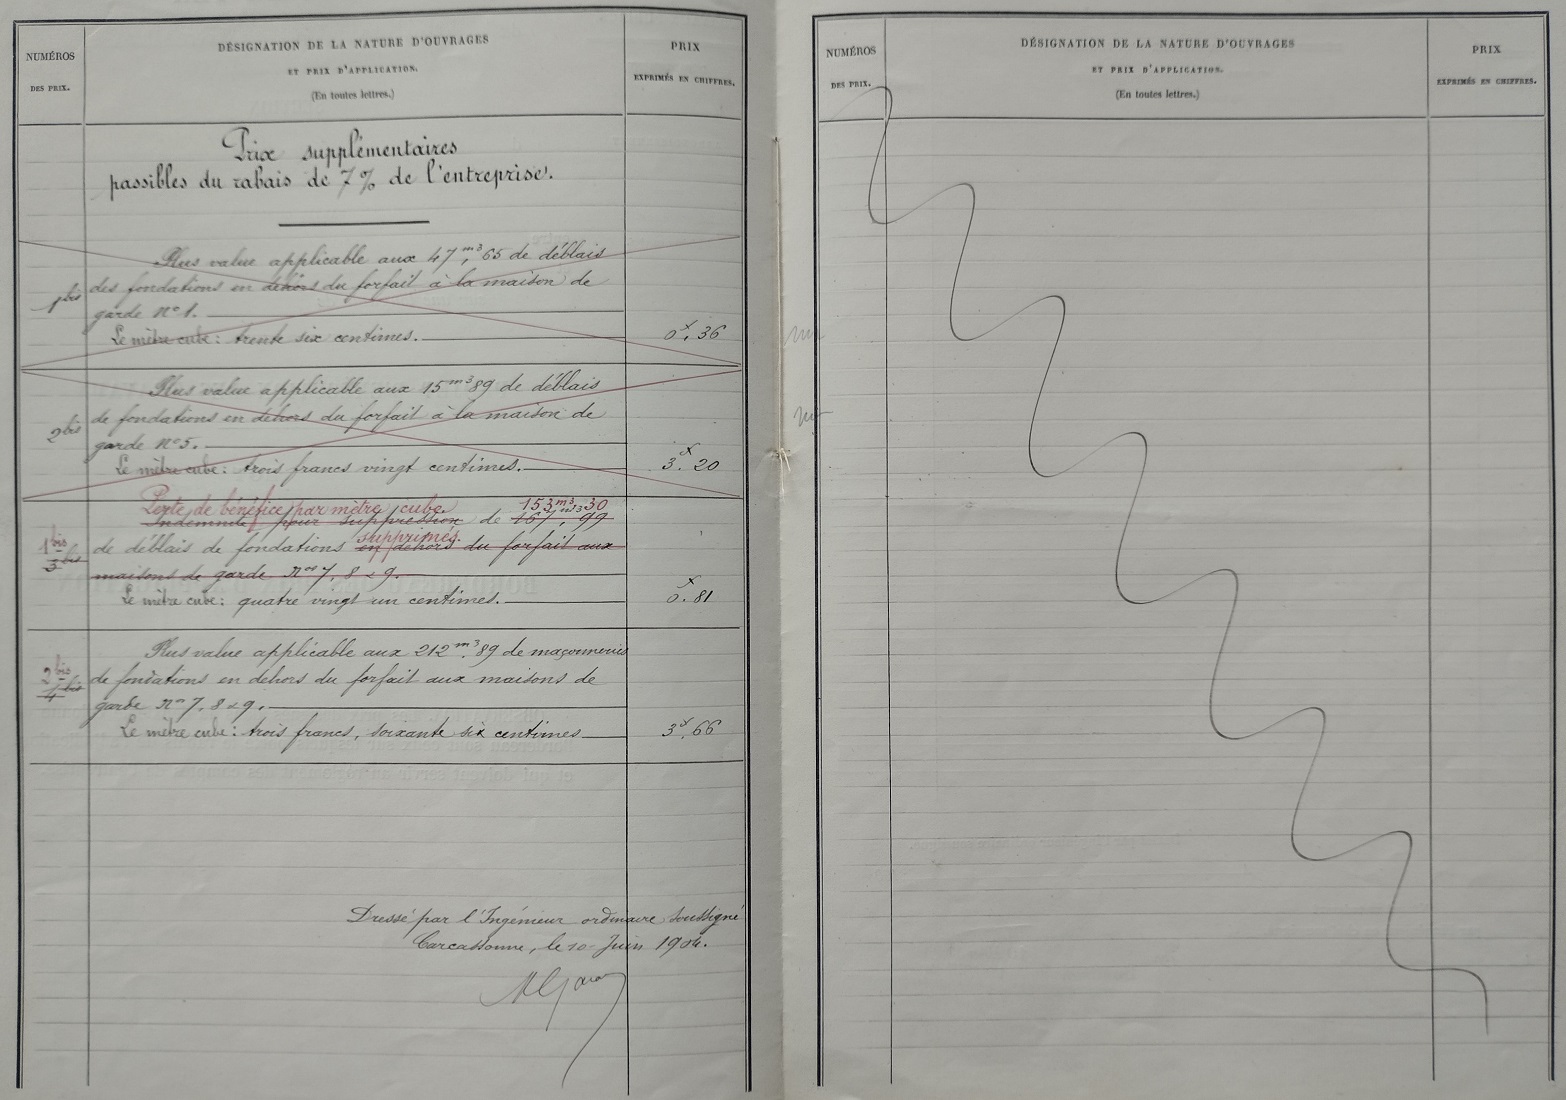 NUMÉROS
DES PRIX.
DÉSIGNATION DE LA NATURE D'OUVRAGES
ET PRIX D'APPLICATION.
(En toutes lettres.)
PRIX
EXPRIMÉS EN CHIFFRES.
Prix supplémentaires
passibles du rabais de 7% de l'entreprise.
Plus value applicable aux 47,m3 65 de déblais
1 bis des fondations en dehors du forfait à la maison de
garde n° 1.
Le mètre cube : trente six centimes. 0f,36
Plus value applicable aux 15m3 89 de déblais
2 bis de fondations en dehors du forfait à la maison de
garde n° 5.
Le mètre cube : trois francs vingt centimes. 3f.20
Perte de bénéfice par mètre cube 153m3,30
Indemnité pour suppression de 167,m3 99
supprimés.
1 bis
3 bis
de déblais de fondations en dehors du forfait aux
maisons de garde Nos 7, 8 & 9.
Le mètre cube : quatre vingt un centimes. 0f.81
Plus value applicable aux 212m3.89 de maçonneries
2 bis
4 bis
de fondations en dehors du forfait aux maisons de
garde Nos 7, 8 & 9.
Le mètre cube : trois francs, soixante six centimes 3f,66
Dressé par l'Ingénieur ordinaire soussigné
Carcassonne, le 10 Juin 1904.
NUMÉROS
DES PRIX.
DÉSIGNATION DE LA NATURE D'OUVRAGES
ET PRIX D'APPLICATION.
(En toutes lettres.)
PRIX
EXPRIMÉS EN CHIFFRES.